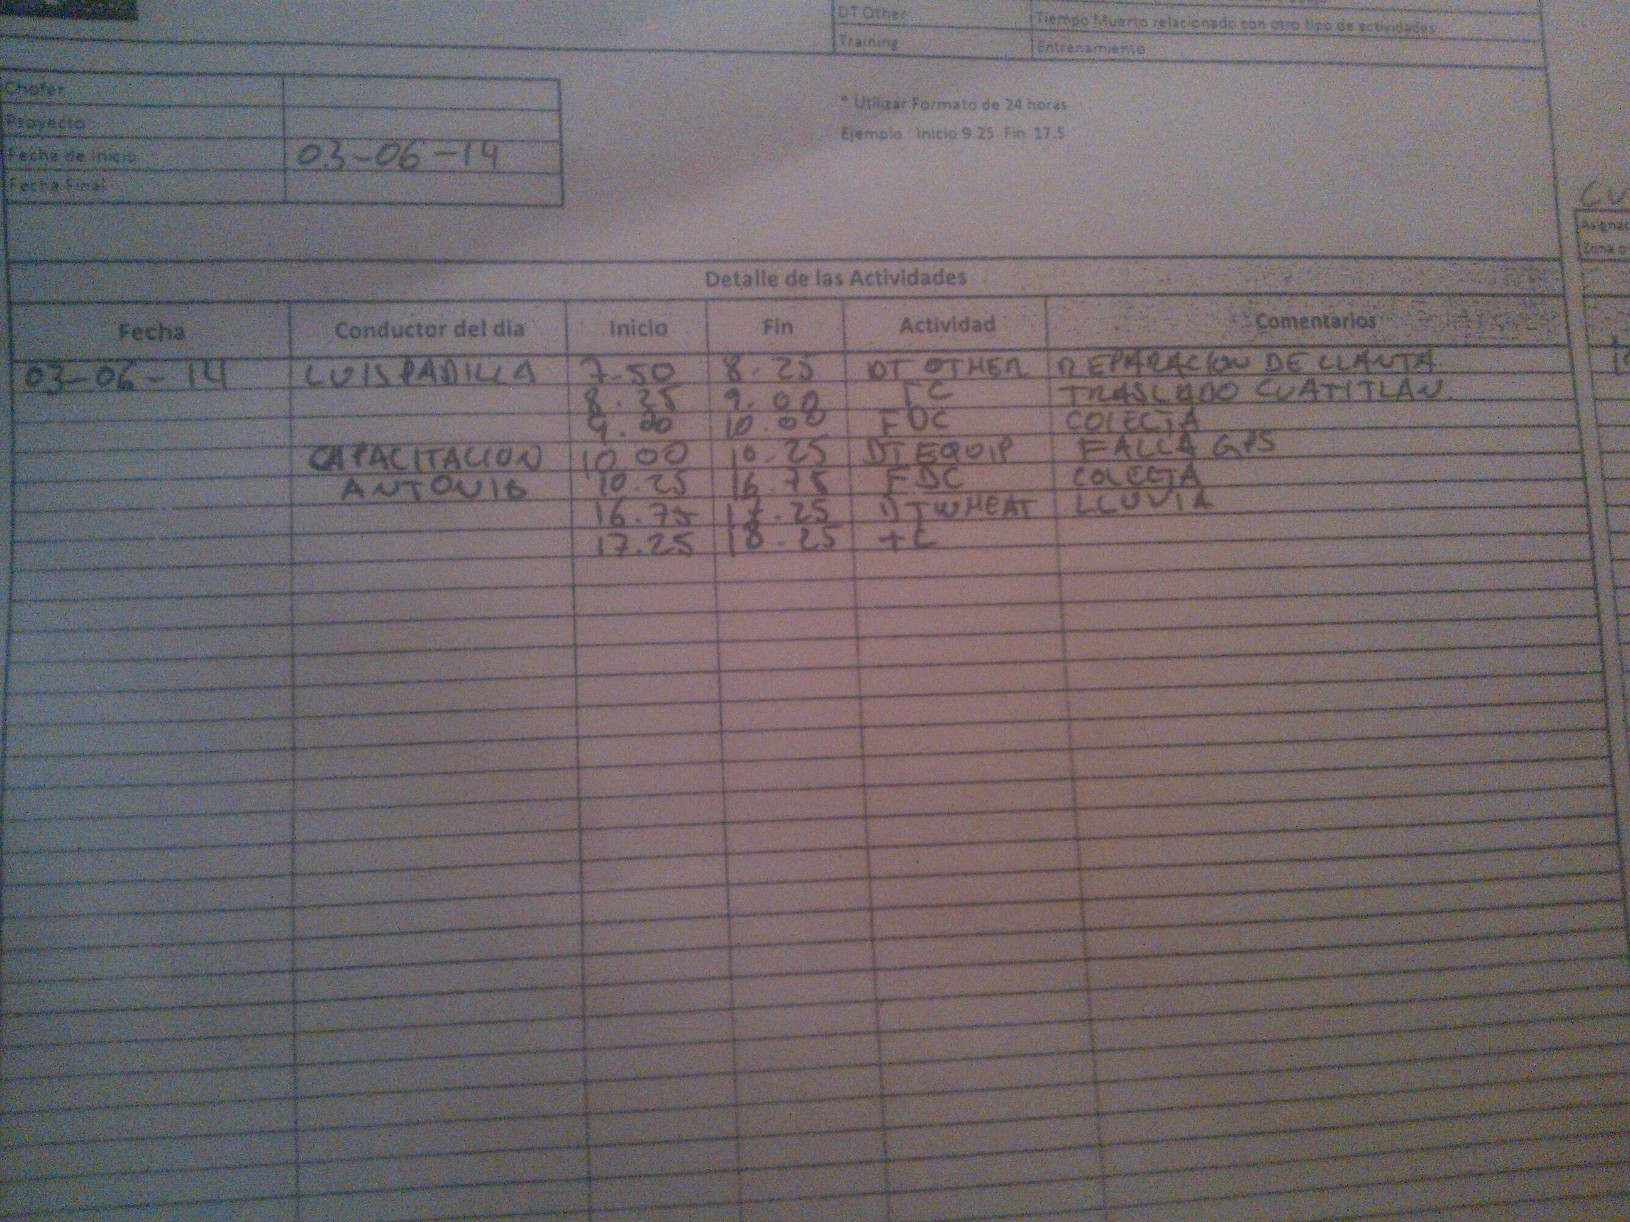 DT Other Tiempo Muerto relacionado con otro tipo de actividades
Training Entrenamiento
Chofer
Proyecto
Fecha de Inicio 03-06-14
Fecha Final
* Utilizar Formato de 24 horas
Ejemplo Inicio 9.25 Fin 17.5
CU
Detalle de las Actividades
Fecha Conductor del dia Inicio Fin Actividad Comentarios
03-06-14 LUIS PADILLA 7.50 8.25 DT OTHER REPARACION DE LLANTA
8.25 9.00 TC TRASLADO CUATITLAN
9.00 10.00 FDC COLECTA
CAPACITACION 10.00 10.25 DT EQUIP FALLA GPS
ANTONIO 10.25 16.75 FDC COLECTA
16.75 17.25 DT WHEAT LLUVIA
17.25 18.25 TC